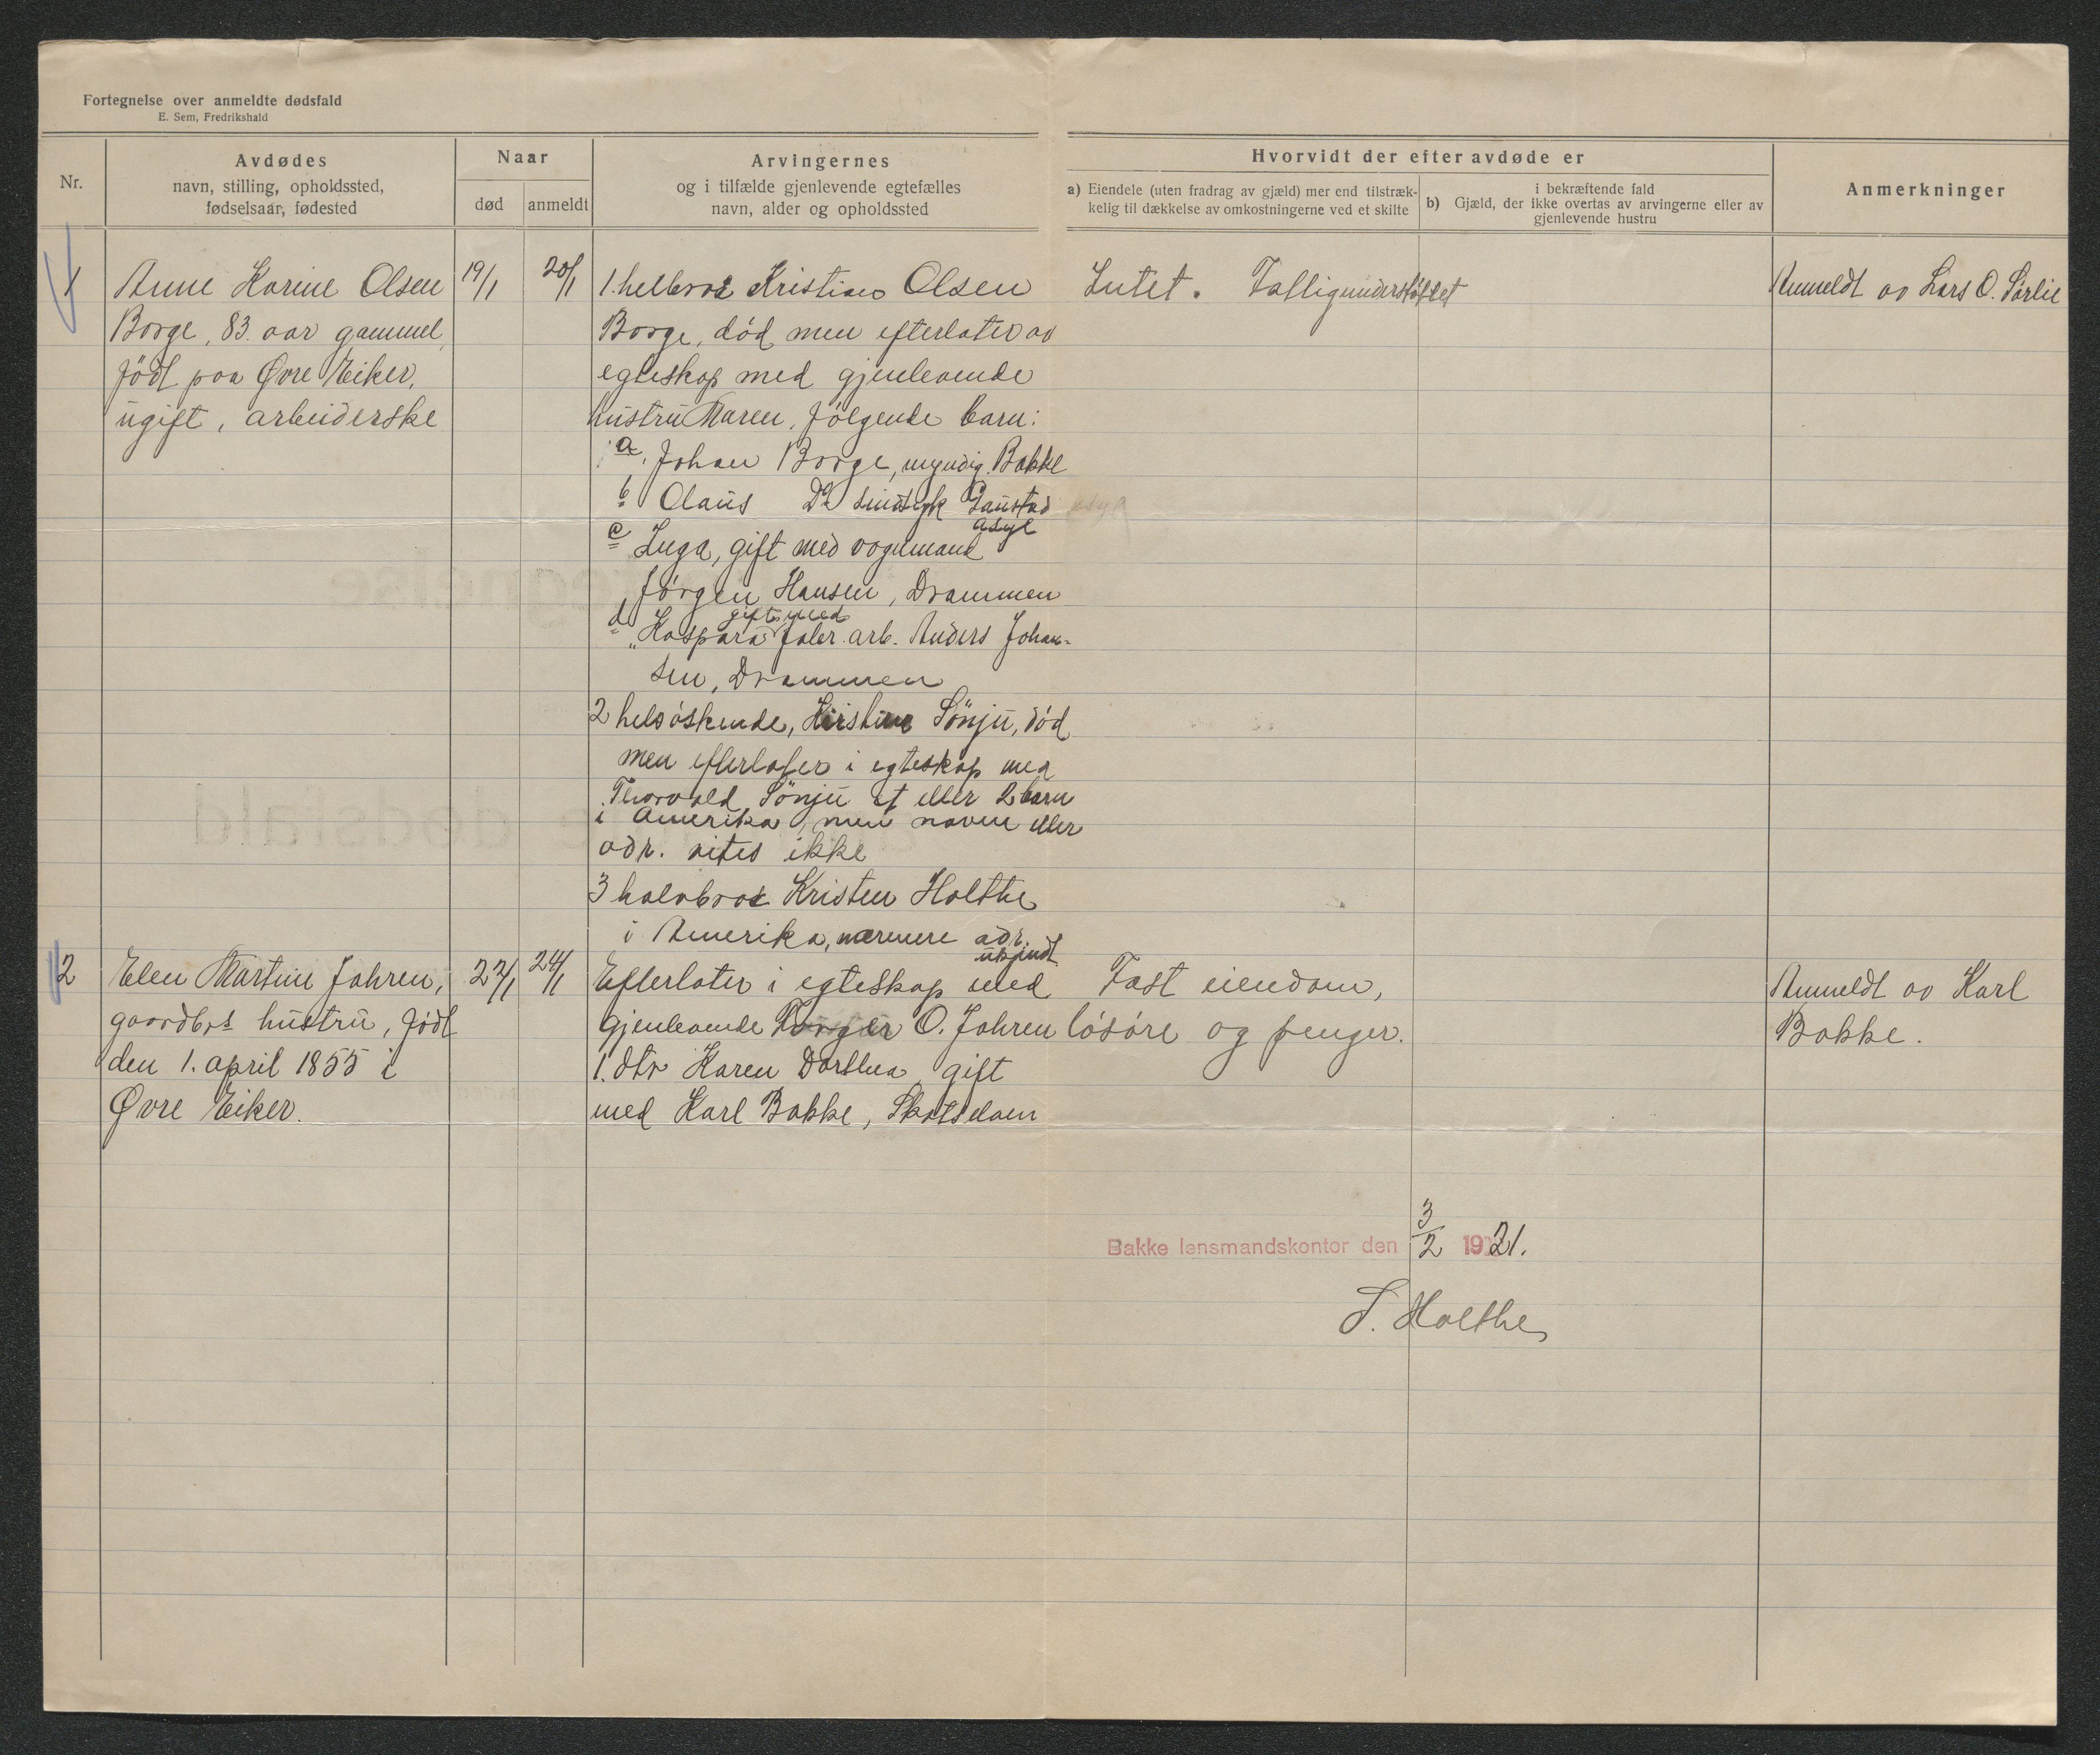 Fortegnelse over anmeldte dødsfald
E. Sem, Fredrikshald
Nr.
Avdødes
navn, stilling, opholdssted,
fødselsaar, fødested
Naar
død
anmeldt
Arvingernes
og i tilfælde gjenlevende egtefælles
navn, alder og opholdssted
Hvorvidt der efter avdøde er
a) Eiendele (uten fradrag av gjæld) mer end tilstræk-
kelig til dækkelse av omkostningerne ved et skifte
i bekræftende fald
b) Gjæld, der ikke overtas av arvingerne eller av
gjenlevende hustru
Anmerkninger
1
Anne Karine Olsen
Borge, 83 aar gammel,
født paa Øvre Eiker,
ugift, arbeiderske
19/1
20/1
1. helbror Kristian Olsen
Borge, død men efterlater av
egteskap med gjenlevende
hustru Maren, følgende barn:
a. Johan Borge, myndig. Bakke
b Olaus Do sindsyk Gaustad
asyl
c Inga, gift med vognmand
Jørgen Hansen, Drammen
gift med
d Kaspara fabr. arb. Anders Johan-
sen, Drammen
2 helsøskende, Kirstine Sönju, död
men efterlater i egteskap med
Thorvald Sönju et eller 2 barn
i Amerika, men navne eller
adr. vites ikke
3 halvbror Kristen Holthe
i Amerika, nærmere adr.
ukjendt
Intet. Fattigunderstøttet
Anmeldt av Lars O. Sørlie
2
Elen Martine Jahren,
gaardbrs hustru, født
den 1. april 1855 i
Øvre Eiker.
22/1
24/1
Efterlater i egteskap med
gjenlevende Torger O. Jahren
1. dtr Karen Dorthea gift
med Karl Bakke, Skotselven
Fast eiendom,
løsøre og penger.
Anmeldt av Karl
Bakke.
Bakke lensmandskontor den 3/2 1921.
T. Holthe